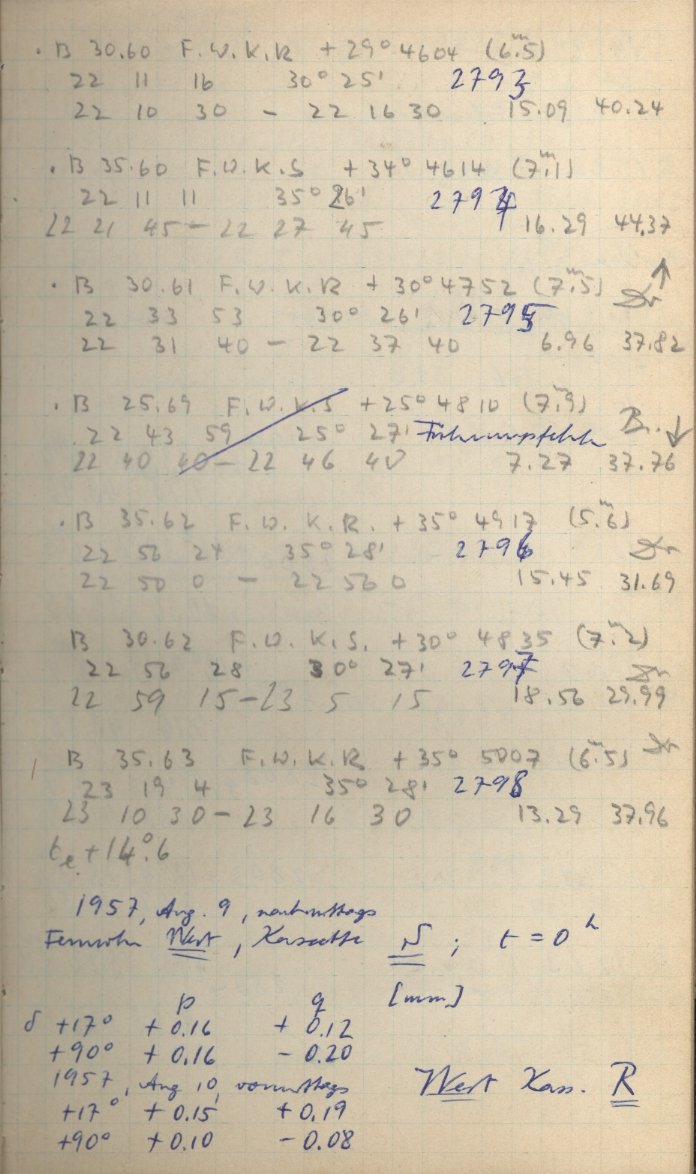 . B 30.60 F.W.K.R +29° 4604 (6ᵐ.5)
22 11 16 30° 25' 2793
22 10 30 - 22 16 30 15.09 40.24
. B 35.60 F.W.K.S +34° 4614 (7ᵐ.1)
22 11 11 35° 26' 2794
22 21 45 - 22 27 45 16.29 44.37
. B 30.61 F.W.K.R + 30° 4752 (7ᵐ.5) Dr ↑
22 33 53 30° 26' 2795
22 31 40 - 22 37 40 6.96 37.82
. B 25.69 F.W.K.S +25° 4810 (7ᵐ.9)
22 43 59 25° 27' B. ↓
22 40 40 - 22 46 40 7.27 37.76
. B 35.62 F.W.K.R. +35° 4917 (5ᵐ.6)
22 56 24 35° 28' 2796 Dr
22 50 0 - 22 56 0 15.45 31.69
B 30.62 F.W.K.S. +30° 4835 (7ᵐ.2)
22 56 28 30° 27' 2797 Dr
22 59 15 - 23 5 15 18.56 29.99
B 35.63 F.W.K.R +35° 5007 (6ᵐ.5) Dr
23 19 4 35° 28' 2798
23 10 30 - 23 16 30 13.29 37.96
tₑ +14°.6
1957, Aug. 9, nachmittags
Fernrohr West, Kassette S ; t = 0ʰ
p q [mm]
δ +17° +0.16 +0.12
+90° +0.16 -0.20
1957, Aug 10, vormittags West Kass. R
+17° +0.15 +0.19
+90° +0.10 -0.08